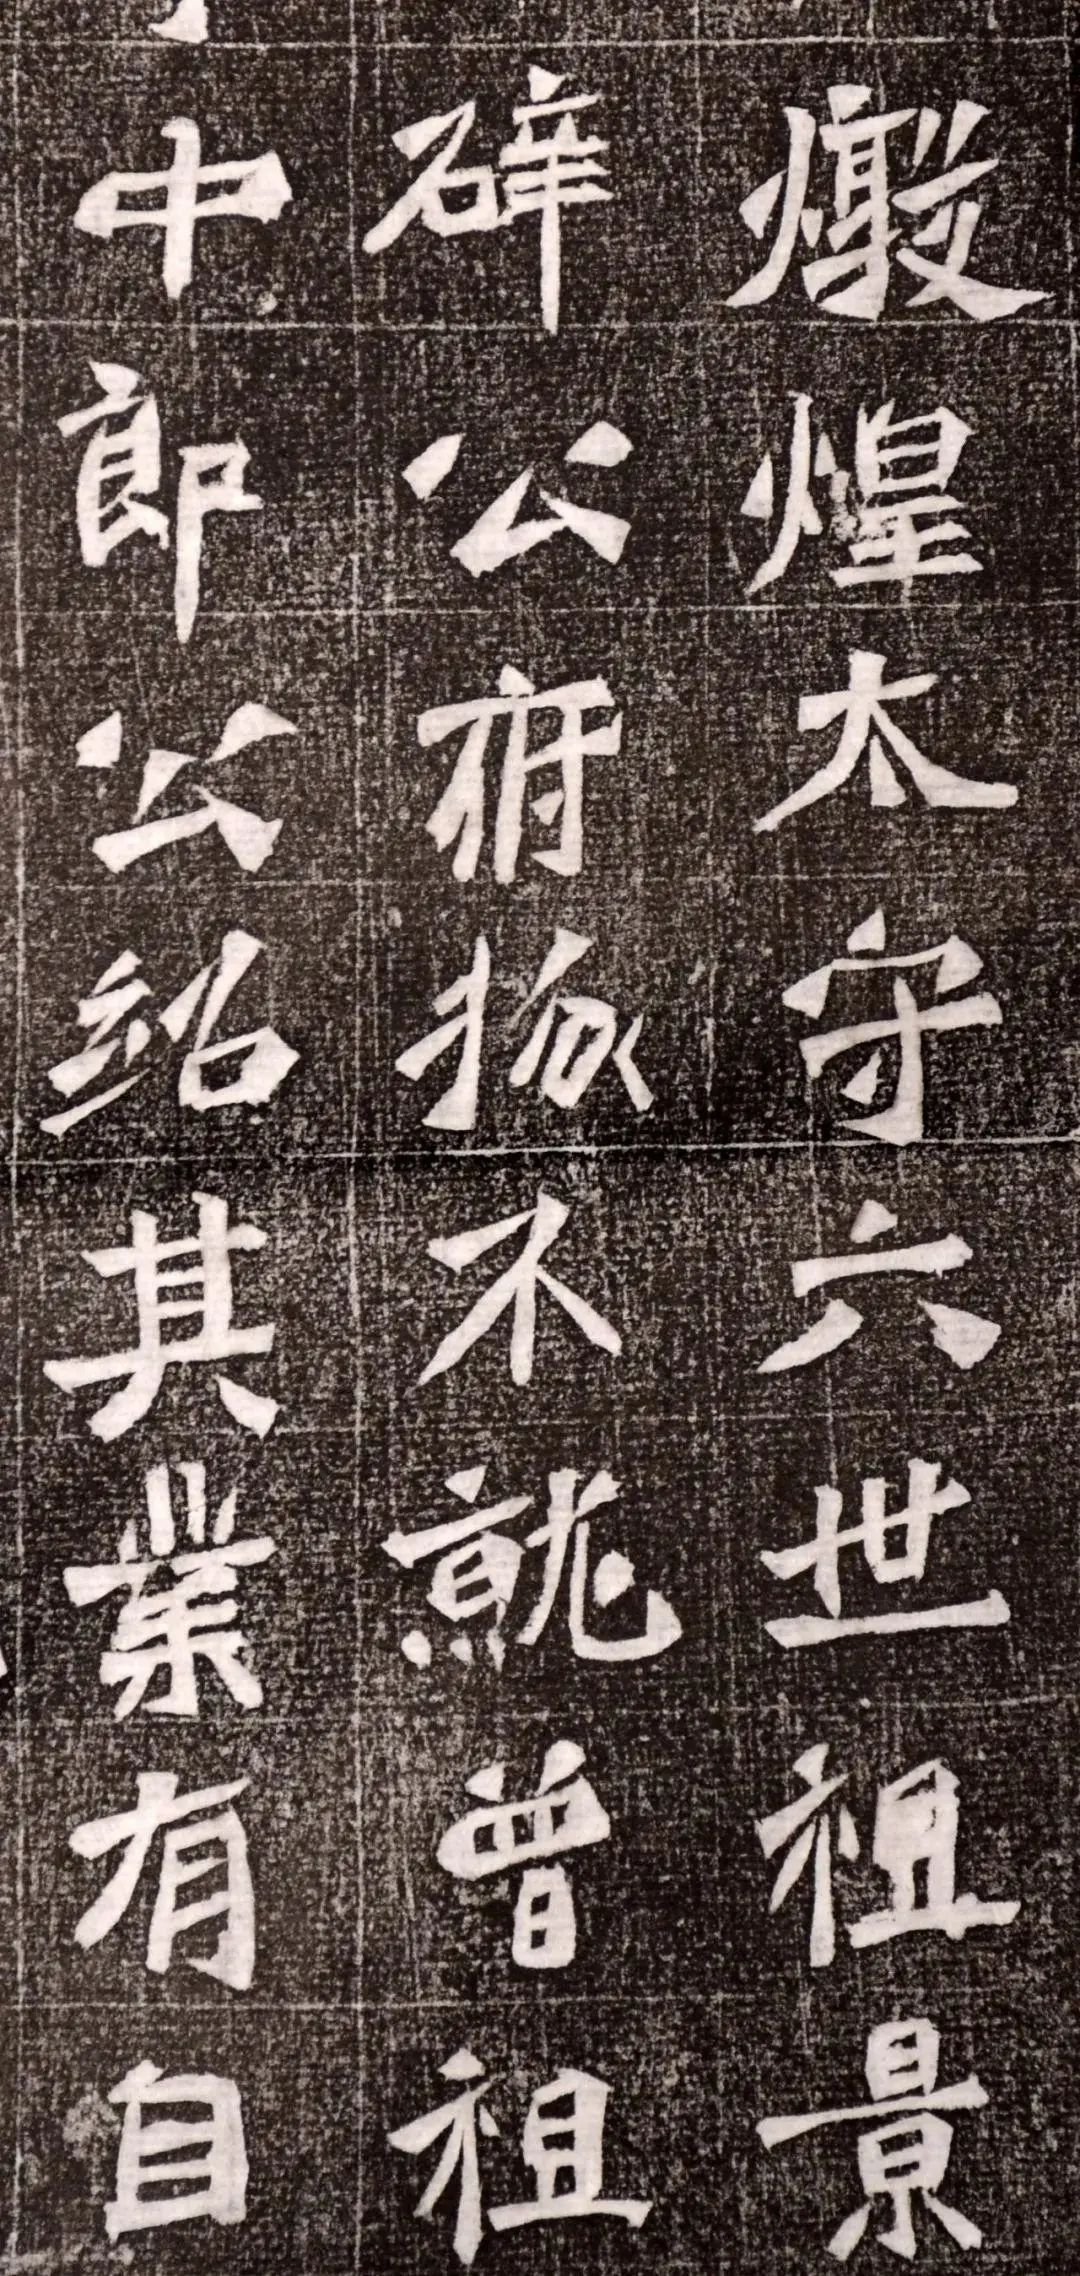 燉煌太守六世祖景
辟公府掾不就曾祖
中郎公紹其業有自